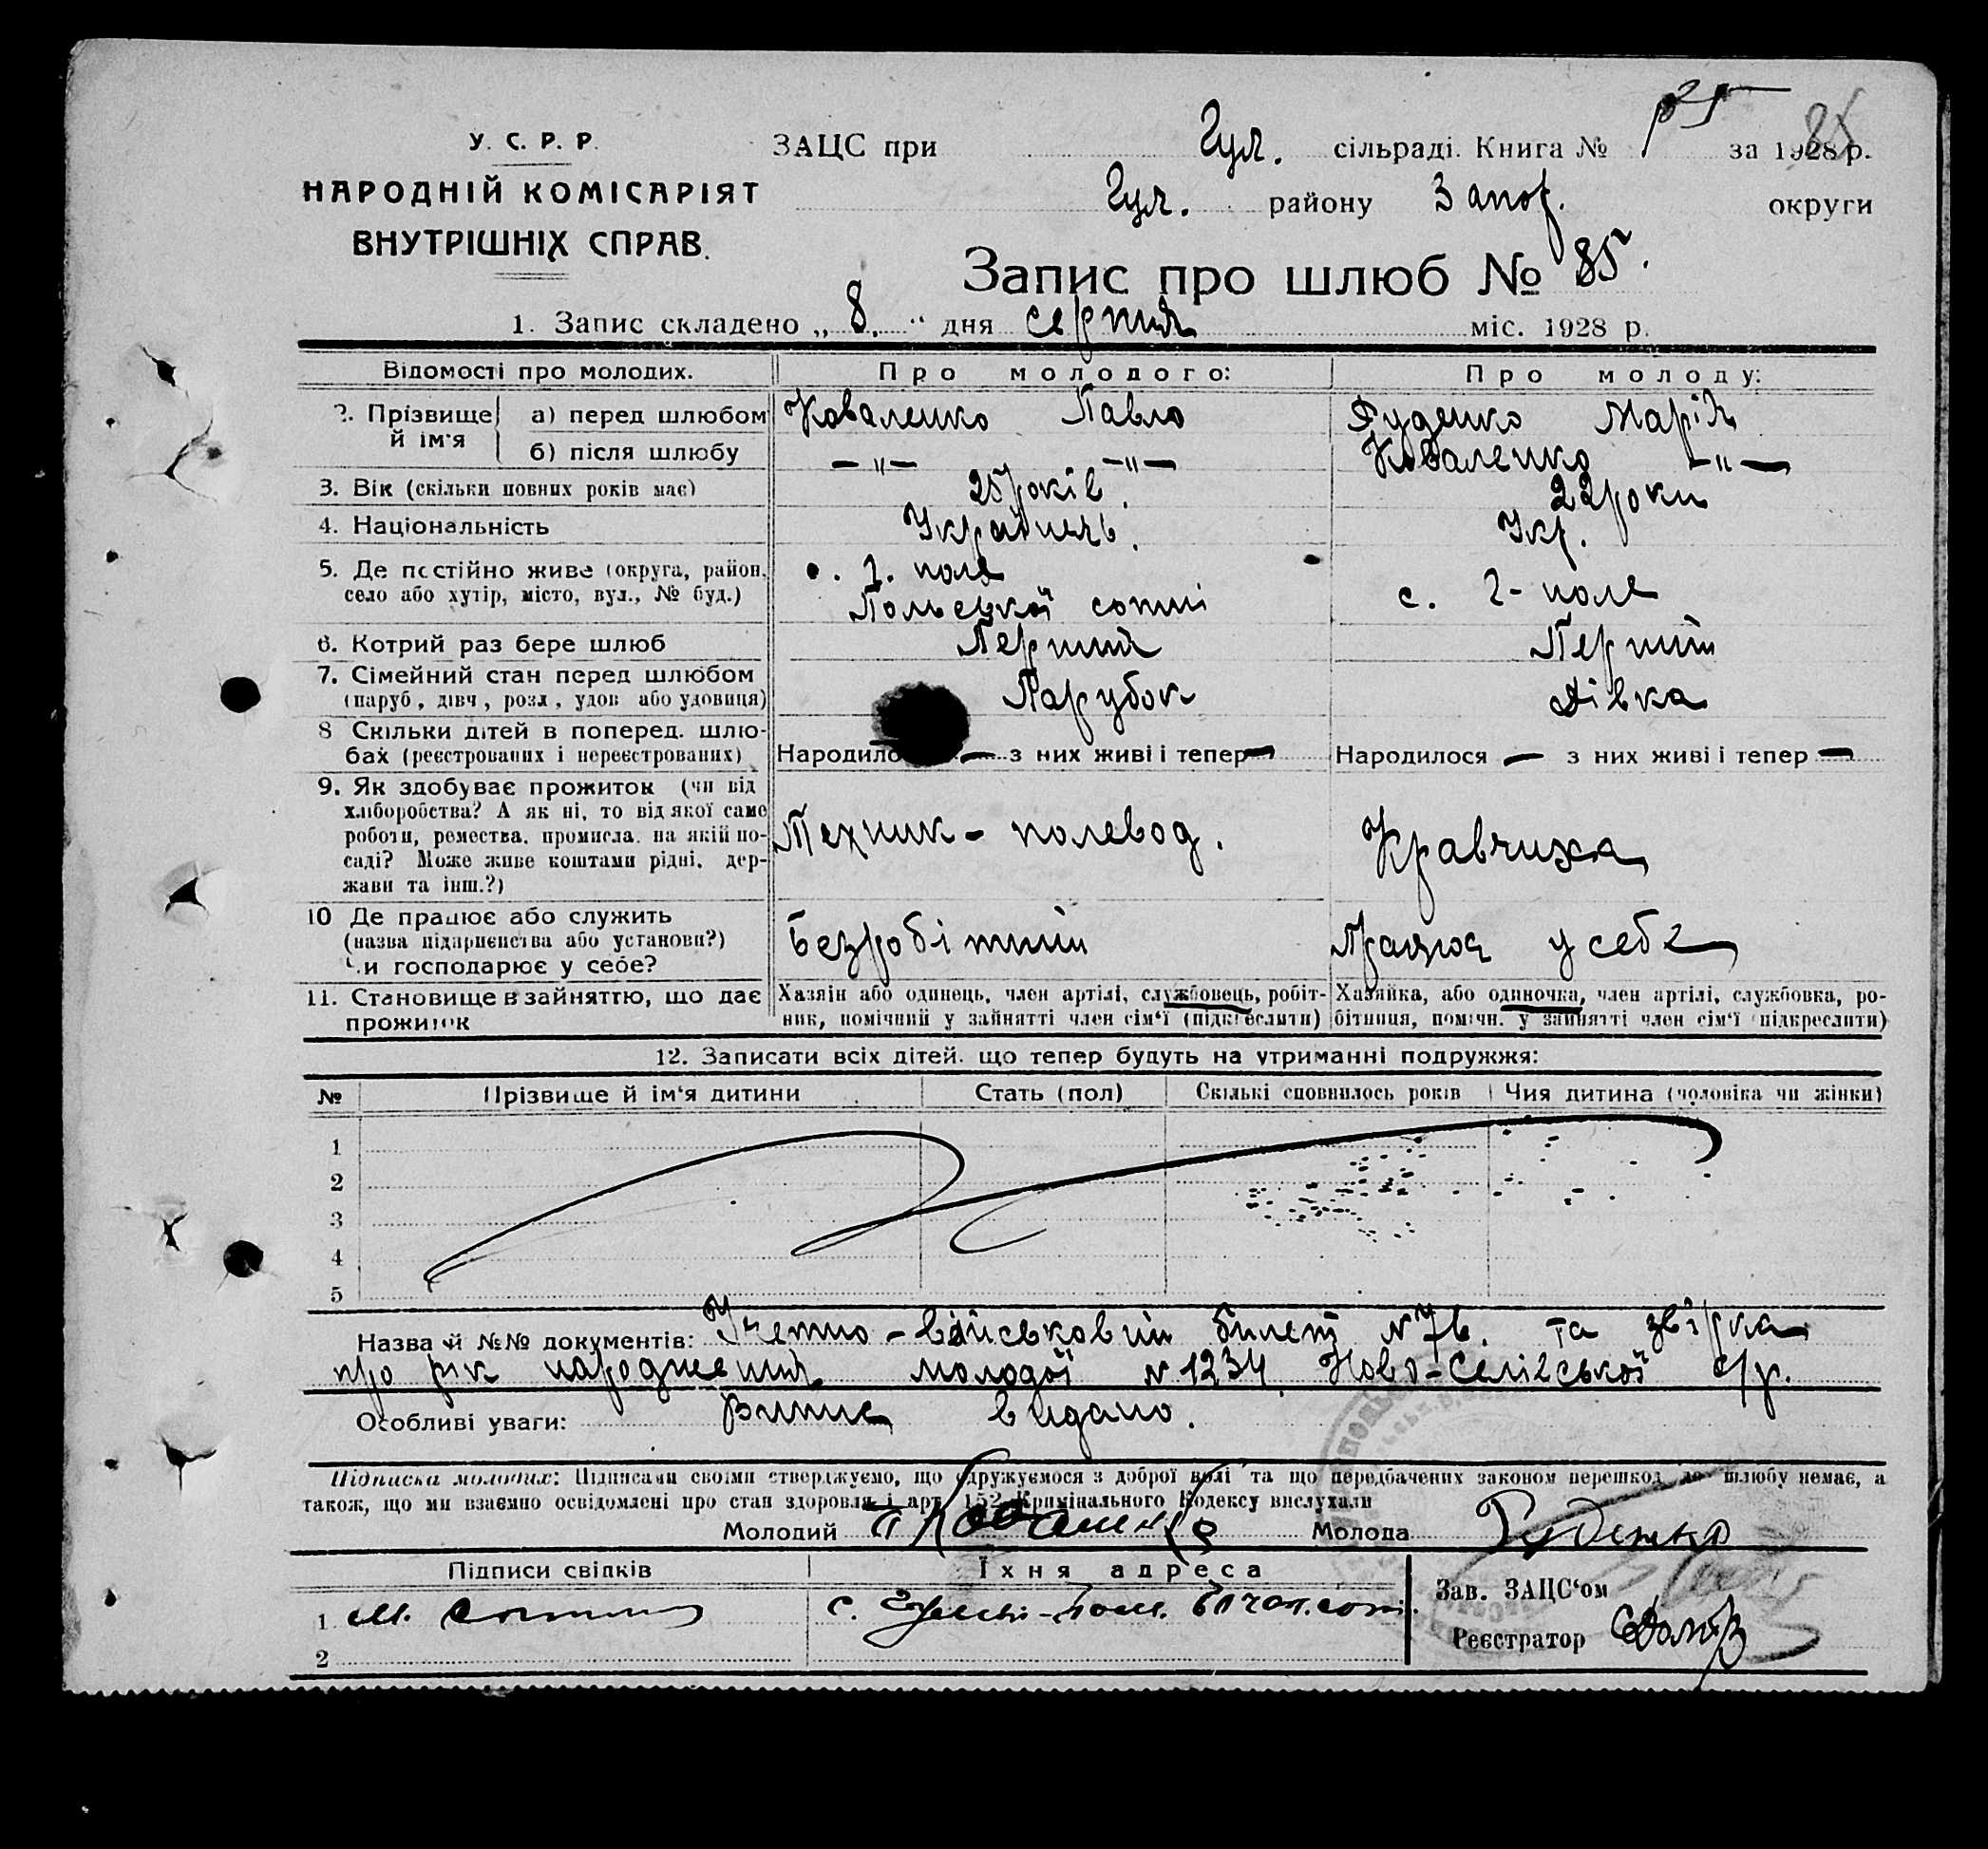 У. С. Р. Р. ЗАЦС при Гул. сільраді. Книга № за 1928 р.
НАРОДНІЙ КОМІСАРІЯТ Гул. району Запор. округи
ВНУТРІШНІХ СПРАВ.
Запис про шлюб № 85.
1. Запис складено „ 8. “ дня серпня міс. 1928 р.
Відомості про молодих. Про молодого: Про молоду:
2. Прізвище й ім'я а) перед шлюбом Коваленко Павло Руденко Марія
б) після шлюбу —„— —„— Коваленко —„—
3. Вік (скільки повних років має) 25 років. 22 роки
4. Національність Українець. Укр.
5. Де постійно живе (округа, район, с. Г. поле с. Г-поле
село або хутір, місто, вул., № буд.) Польської сотні
6. Котрий раз бере шлюб Перший Перший
7. Сімейний стан перед шлюбом Парубок Дівка
(паруб, дівч, розл, удов або удовиця)
8 Скільки дітей в поперед. шлю-
бах (реєстрованих і нереєстрованих) Народило — з них живі і тепер — Народилося — з них живі і тепер —
9. Як здобуває прожиток (чи від
хліборобства? А як ні, то від якої саме
роботи, ремества, промисла, на якій по- Технік - полевод. Кравчиха
саді? Може живе коштами рідні, дер-
жави та інш.?)
10 Де працює або служить Безробітний Працює у себе
(назва підприємства або установи?)
Чи господарює у себе?
11. Становище в зайняттю, що дає Хазяїн або одинець, член артілі, службовець, робіт- Хазяйка, або одиночка, член артілі, службовка, ро-
прожиток ник, помічний у зайнятті член сім'ї (підкреслити) бітниця, помічн. у зайнятті член сім'ї (підкреслити)
12. Записати всіх дітей, що тепер будуть на утриманні подружжя:
№ Прізвище й ім'я дитини Стать (пол) Скількі сповнилось років Чия дитина (чоловіка чи жінки)
1
2
3
4
5
Назва й №№ документів: Учетно-військовий билет №76. та звірка
про рік народження молодої №1234 Ново-Селівської с/р.
Особливі уваги: Випис видано.
Підписка молодих: Підписами своїми стверджуємо, що одружуємося з доброї волі та що передбачених законом перешкод до шлюбу немає, а
також, що ми взаємно освідомлені про стан здоровля і арт. 152 Кримінального Кодексу вислухали
Молодий П Коваленко Молода Руденко
Підписи свідків Їхня адреса Зав. ЗАЦС'ом
1 М. с. Гуляй-поле. Реєстратор
2